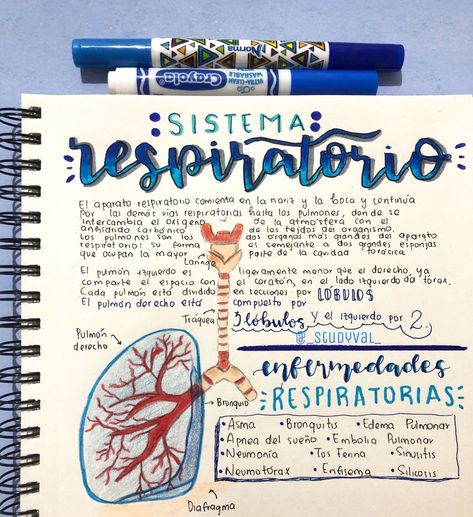 Norma
Crayola
ULTRA-CLEAN
WASHABLE
SISTEMA
respiratorio
El aparato respiratorio comienza en la nariz y la boca y continúa
Por las demás vías respiratorias hasta los pulmones, donde se
intercambia el oxígeno de la atmósfera con el
anhídrido carbónico de los tejidos del organismo.
Los pulmones son los dos órganos más grandes del aparato
respiratorio: su forma es semejante a dos grandes esponjas
que ocupan la mayor parte de la cavidad torácica
Laringe
El pulmón izquierdo es ligeramente menor que el derecho, ya
comparte el espacio con el corazón, en el lado izquierdo del tórax.
Cada pulmón está dividido en secciones por LÓBULOS
El pulmón derecho está compuesto por
Tráquea
3 lóbulos y el izquierdo por 2.
@_STUDYVAL_
Pulmón
derecho
enfermedades
RESPIRATORIAS
Bronquio
• Asma • Bronquitis • Edema Pulmonar
• Apnea del sueño • Embolia Pulmonar
• Neumonía • Tos Ferina • Sinusitis
• Neumotórax • Enfisema • Silicosis
Diafragma